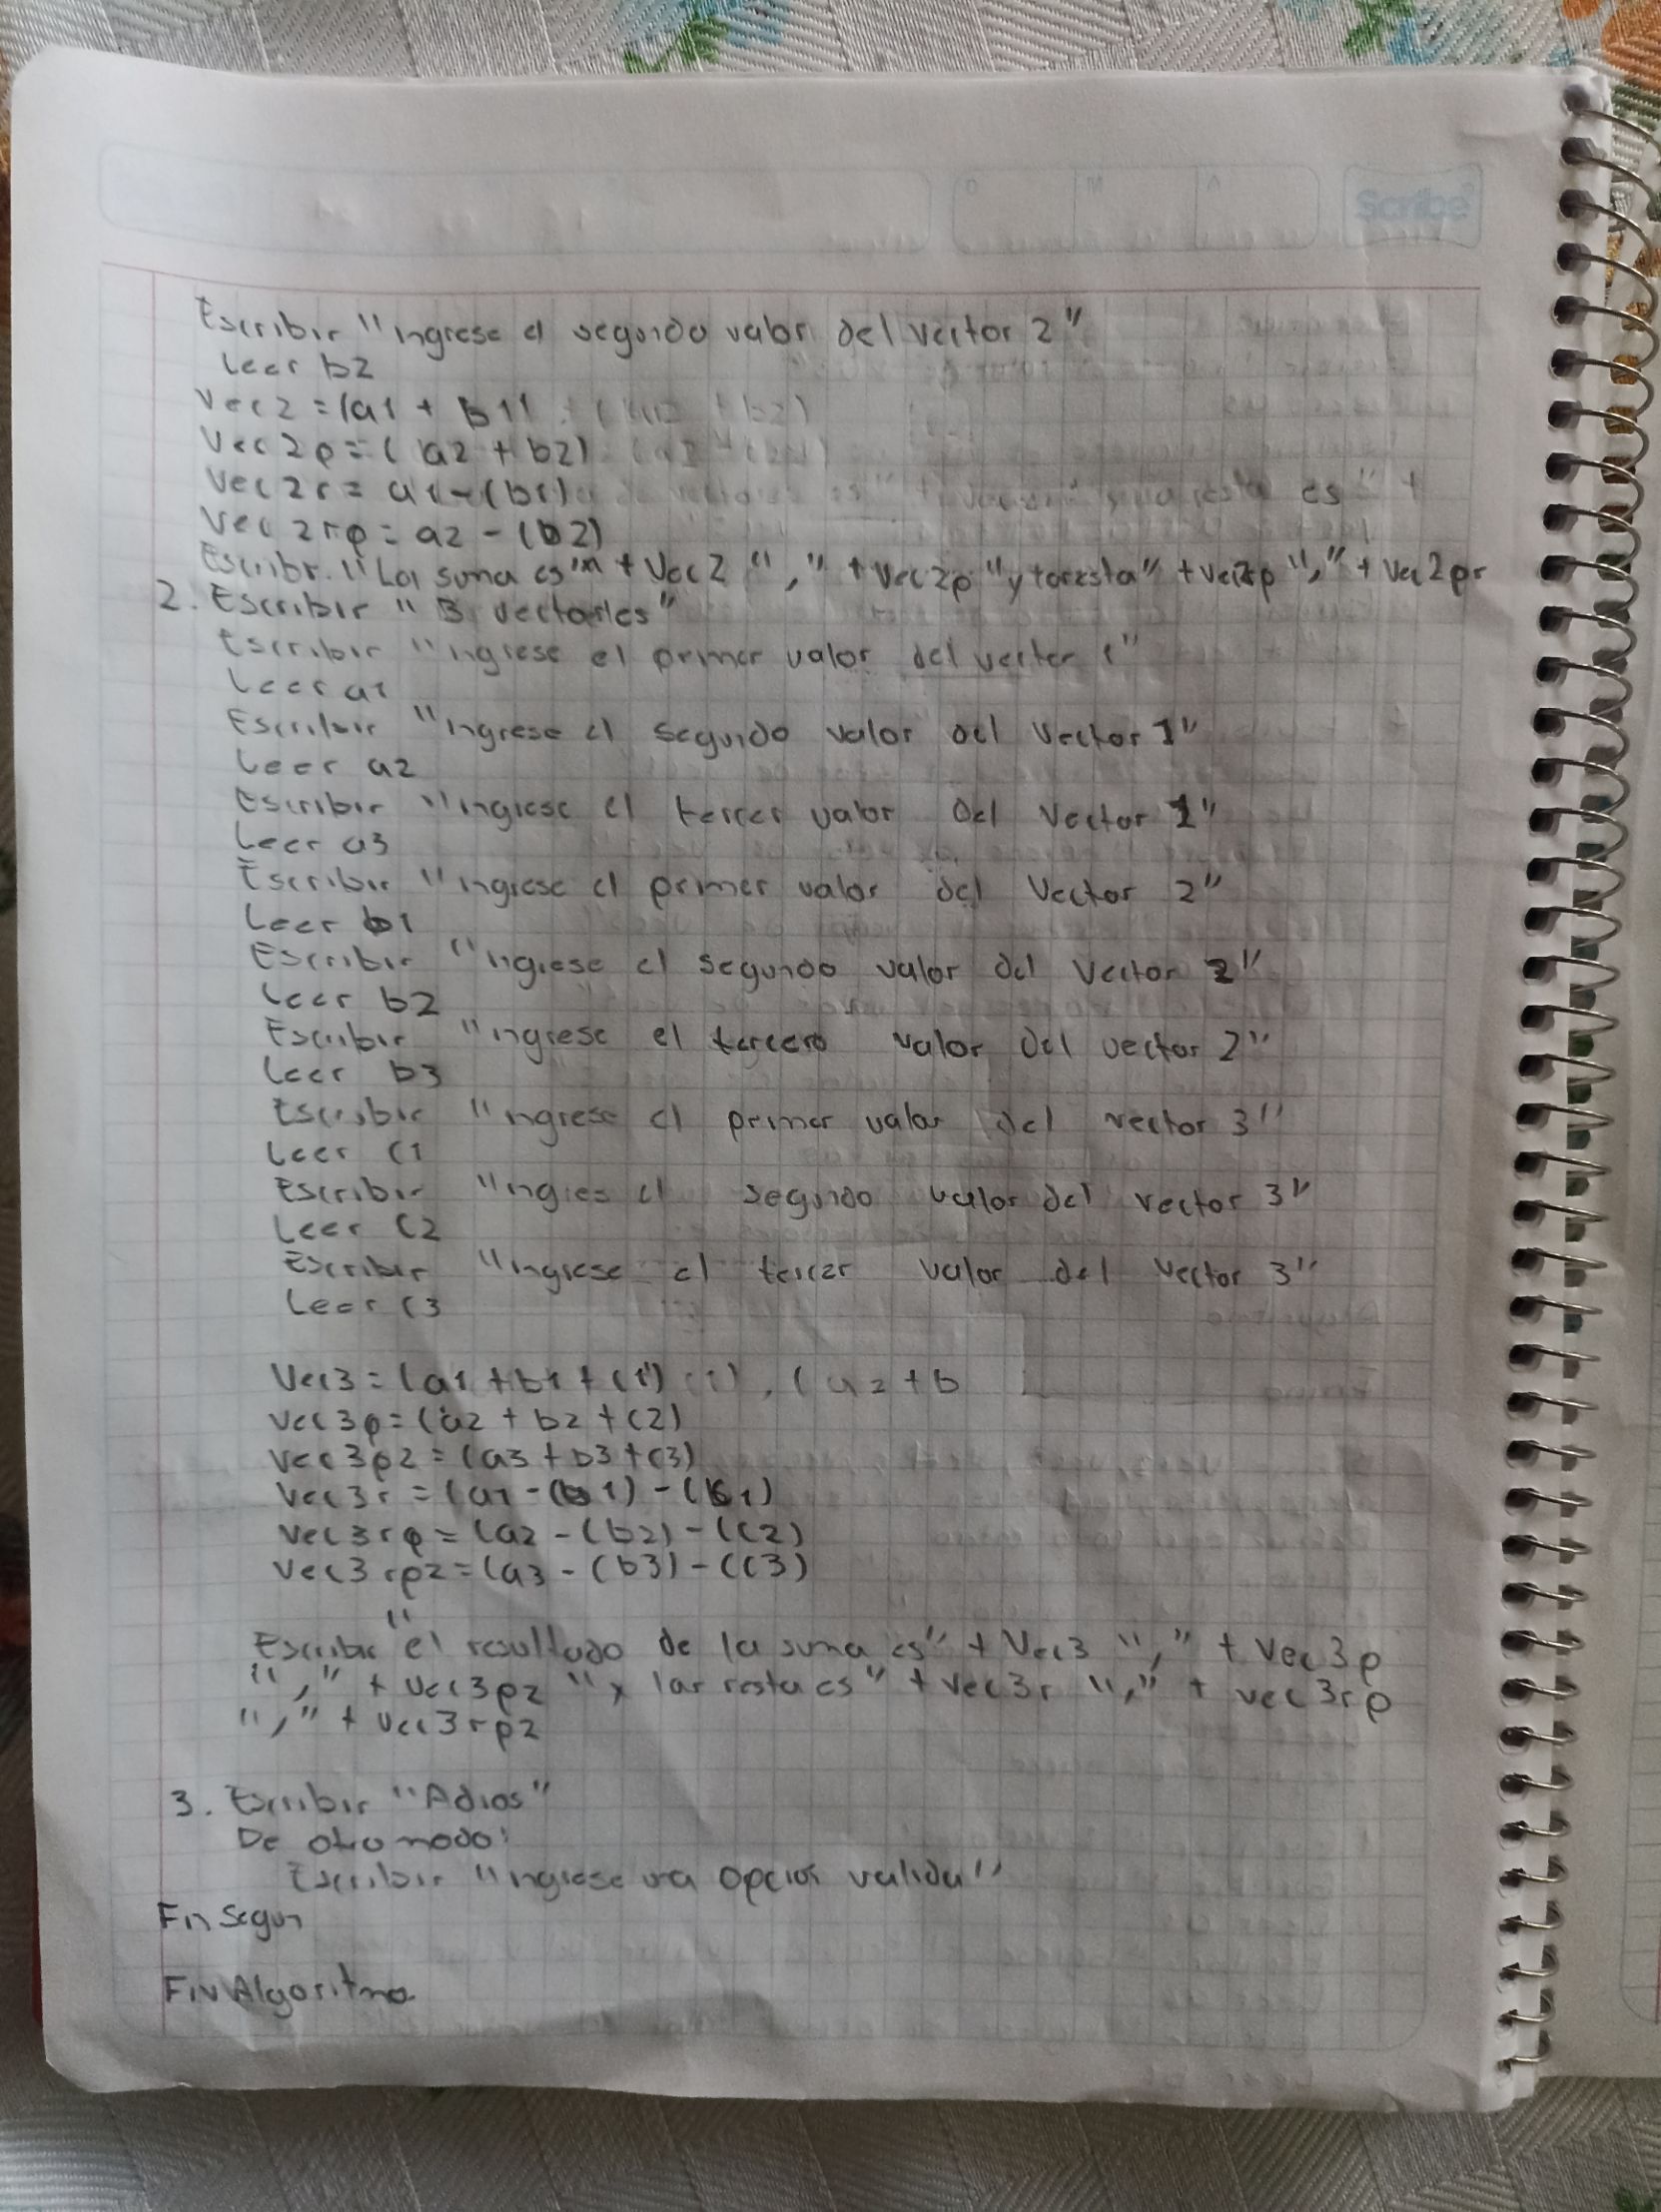 Scribe
Escribir "Ingrese el segundo valor del vector 2"
Leer b2
Vec2 = (a1 + b1)
Vec2p = (a2 + b2)
Vec2r = a1 - (b1)
Vec2rp = a2 - (b2)
Escribir "La suma es" + Vec2 "," + Vec2p "y la resta" + "," + Vec2pr
2. Escribir "3 vectores"
Escribir "Ingrese el primer valor del vector 1"
Leer a1
Escribir "Ingrese el segundo valor del Vector 1"
Leer a2
Escribir "Ingrese el tercer valor del Vector 1"
Leer a3
Escribir "Ingrese el primer valor del Vector 2"
Leer b1
Escribir "Ingrese el segundo valor del Vector 2"
Leer b2
Escribir "Ingrese el tercero valor del vector 2"
Leer b3
Escribir "Ingrese el primer valor del vector 3"
Leer c1
Escribir "Ingres el segundo valor del vector 3"
Leer c2
Escribir "Ingrese el tercer valor del vector 3"
Leer c3
Vec3 = (a1 + b1 + c1)
Vec3p = (a2 + b2 + c2)
Vec3p2 = (a3 + b3 + c3)
Vec3r = (a1 - (b1) - (c1)
Vec3rp = (a2 - (b2) - (c2)
Vec3rp2 = (a3 - (b3) - (c3)
Escribir "el resultado de la suma es" + Vec3 "," + Vec3p
"," + Vec3p2 "y la resta es" + Vec3r "," + vec3rp
"," + Vec3rp2
3. Escribir "Adios"
De otro modo:
Escribir "Ingrese una opcion valida"
Fin Segun
Fin Algoritmo